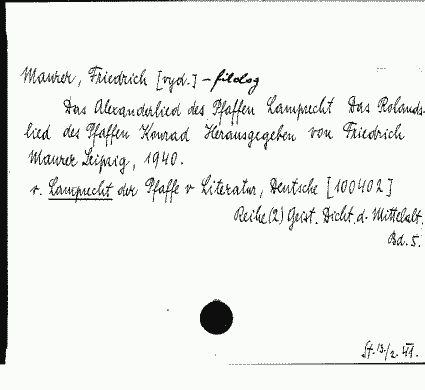 Maurer, Friedrich [vyd.] – filolog
Das Alexanderlied des Pfaffen Lamprecht Das Rolands-
lied des Pfaffen Konrad Herausgegeben von Friedrich
Maurer Leipzig, 1940.
v. Lamprecht der Pfaffe v Literatur, Deutsche [100402]
Reihe (2) Geist. Dicht. d. Mittelalt.
Bd. 5.